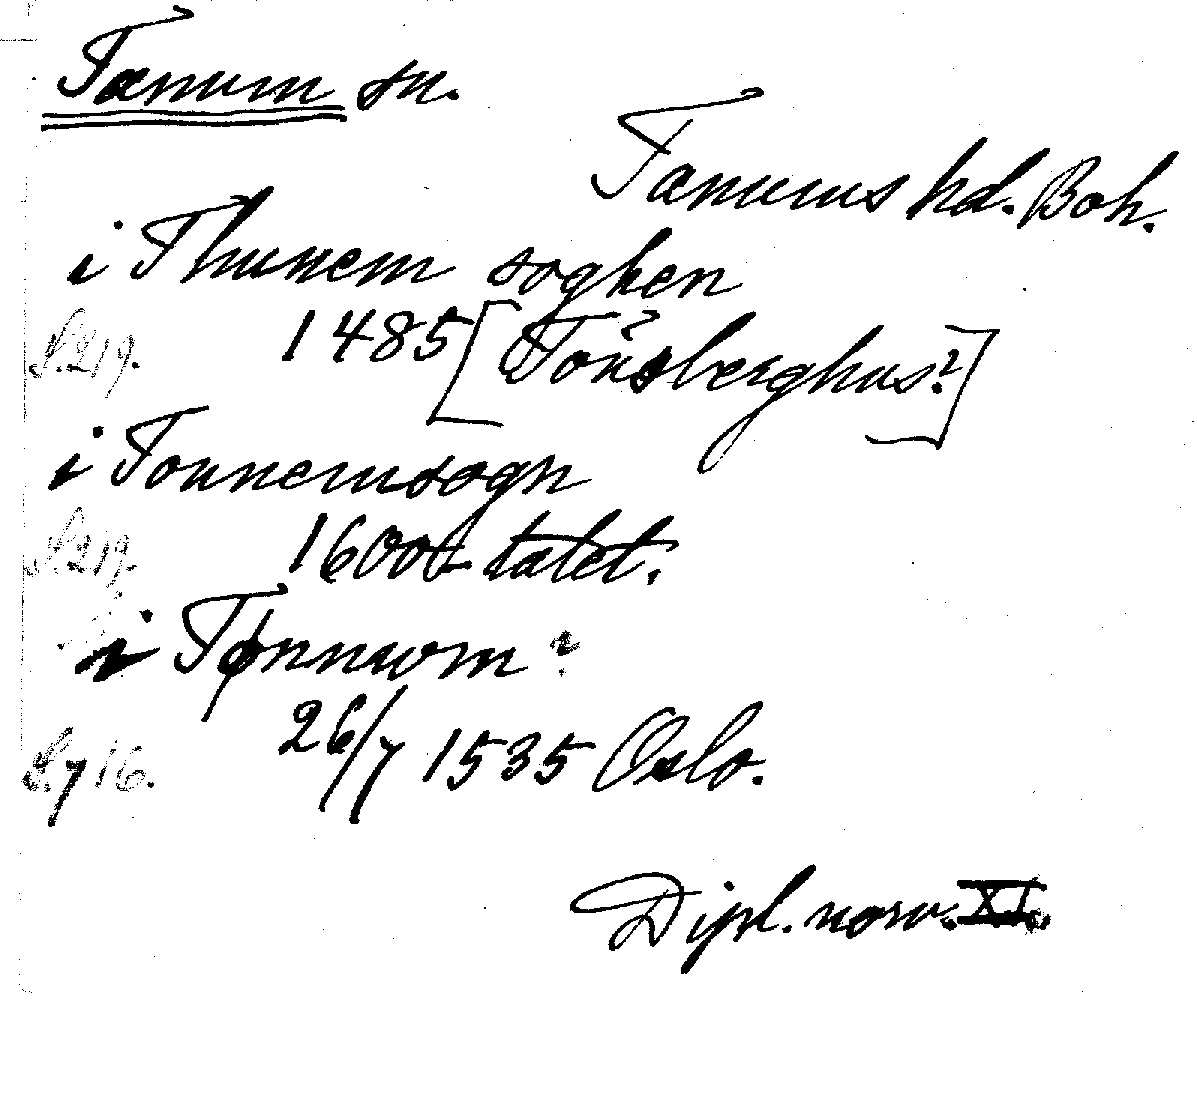 Tanum sn.
Tanums hd. Boh.
i Thunem soghen
S. 219. 1485 [Tönsberghus?]
i Tonnemsogn
S. 219. 1600-talet.
i Tønnwm
S. 716. 26/7 1535 Oslo.
Dipl. norv. XI.